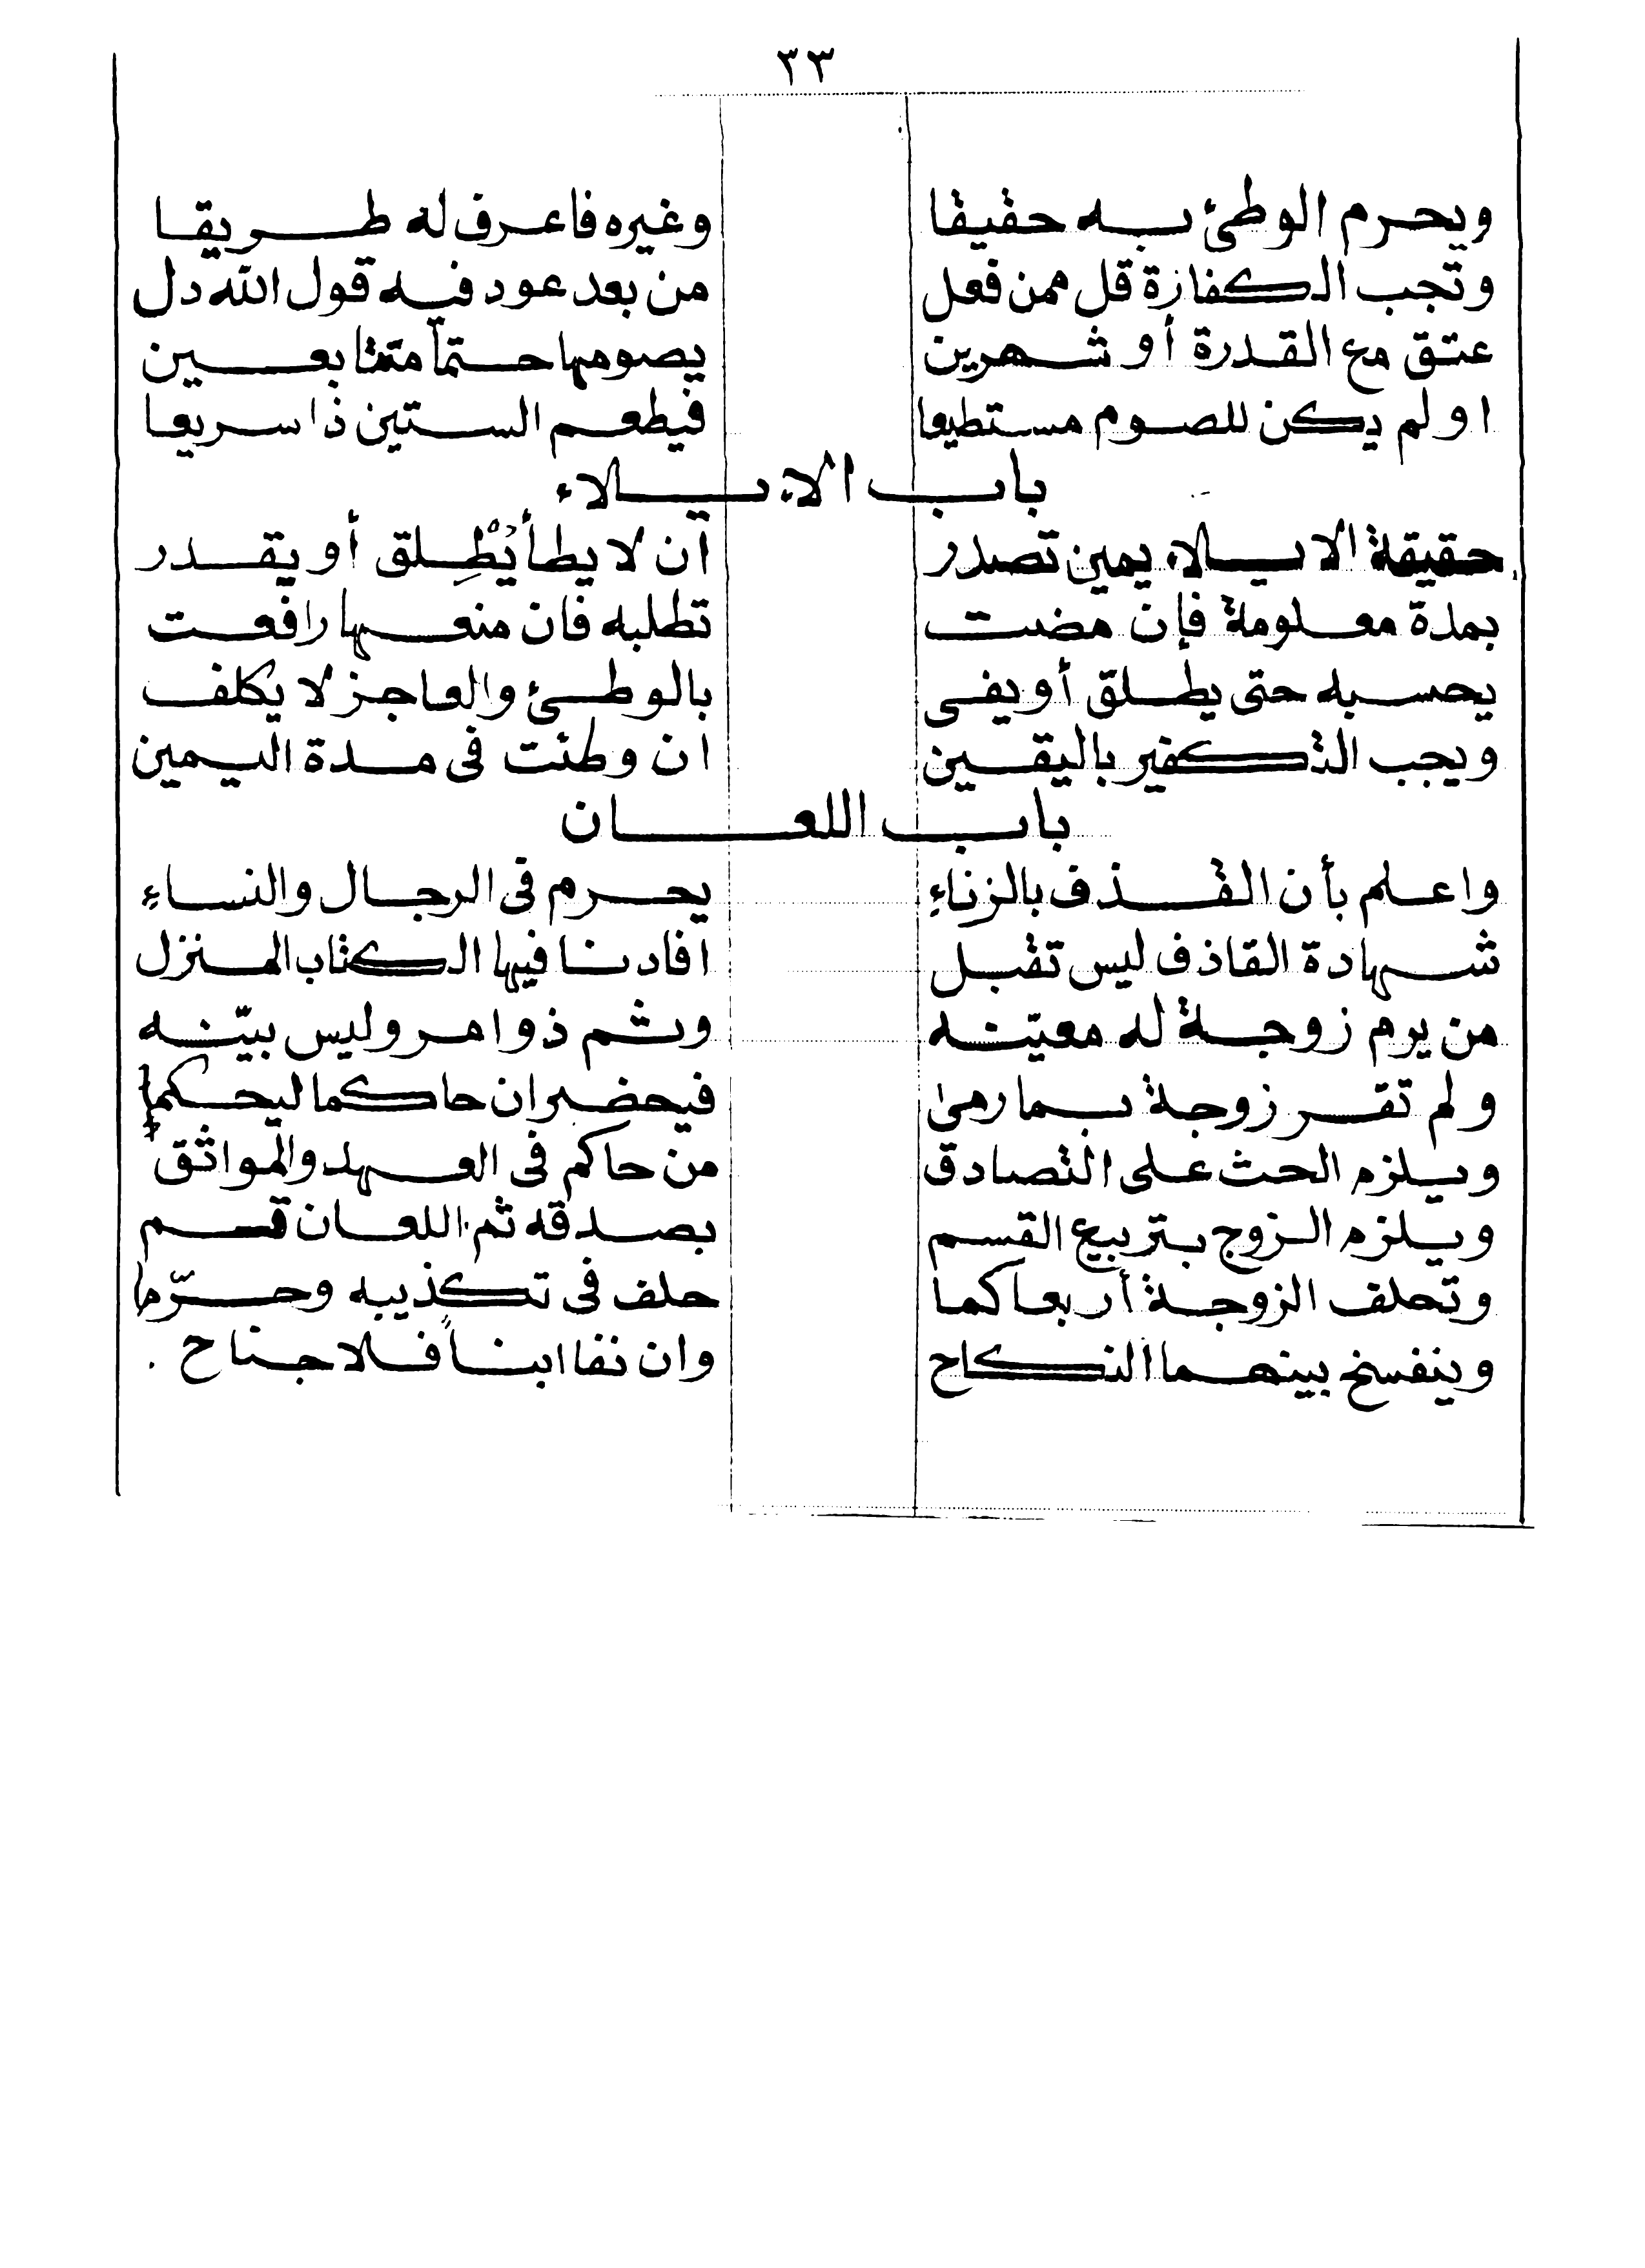 ٣٣
ويحرم الوطئ به حقيقا وغيره فاعرف له طريقا
وتجب الكفارة قل ممن فعل من بعد عود فيه قول الله دل
عتق مع القدرة أو شهرين يصومها حتماً متتابعين
او لم يكن للصوم مستطيعا فيطعم الستين ذا سريعا
باب الايلاء
حقيقة الايلاء يمين تصدر أن لا يطأ يُطْلِق أو يقدر
بمدة معلومة فإن مضت تطلبه فان منعها رافعت
يحسبه حتى يطلق أو يفى بالوطئ والعاجز لا يكلف
ويجب التكفير باليقين ان وطئت فى مدة اليمين
باب اللعان
واعلم بأن القذف بالزناءِ يحرم فى الرجال والنساءِ
شهادة القاذف ليس تقبل افادنا فيها الكتاب المنزل
من يرم زوجة له معيّنه وثم ذوا مر وليس بيّنه
ولم تقر زوجة بما رمى فيحضران حاكما ليحكما
ويلزم الحث على التصادق من حاكم فى العهد والمواثق
ويلزم الزوج بتربيع القسم بصدقه ثم اللعان قسم
وتحلف الزوجة أربعا كما حلف فى تكذيبه وحرّما
وينفسخ بينهما النكاح وان نفا ابناً فلا جناح .